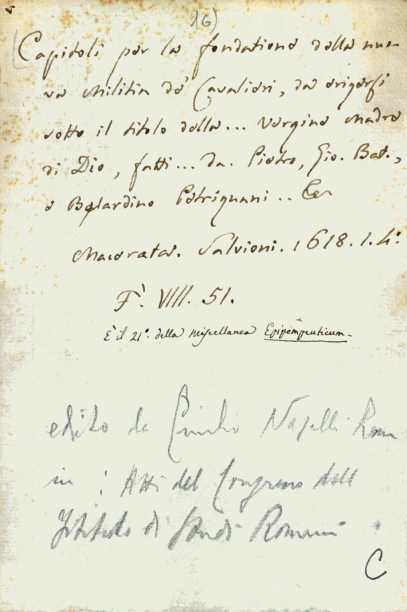 16)
Capitoli per la fondatione della nuo-
va Militia de' Cavalieri, da erigersi
sotto il titolo della... Vergine Madre
di Dio, fatti... da. Pietro, Gio. Bat.,
e Belardino Petrignani..
Macerata. Salvioni. 1618. 1. 4°
F. VIII. 51.
È il 21°. della Miscellanea Epipompeuticum.
edito da Emilio Nasalli Rocca
in : Atti del Congresso dell
Istituto di Studi Romani
C